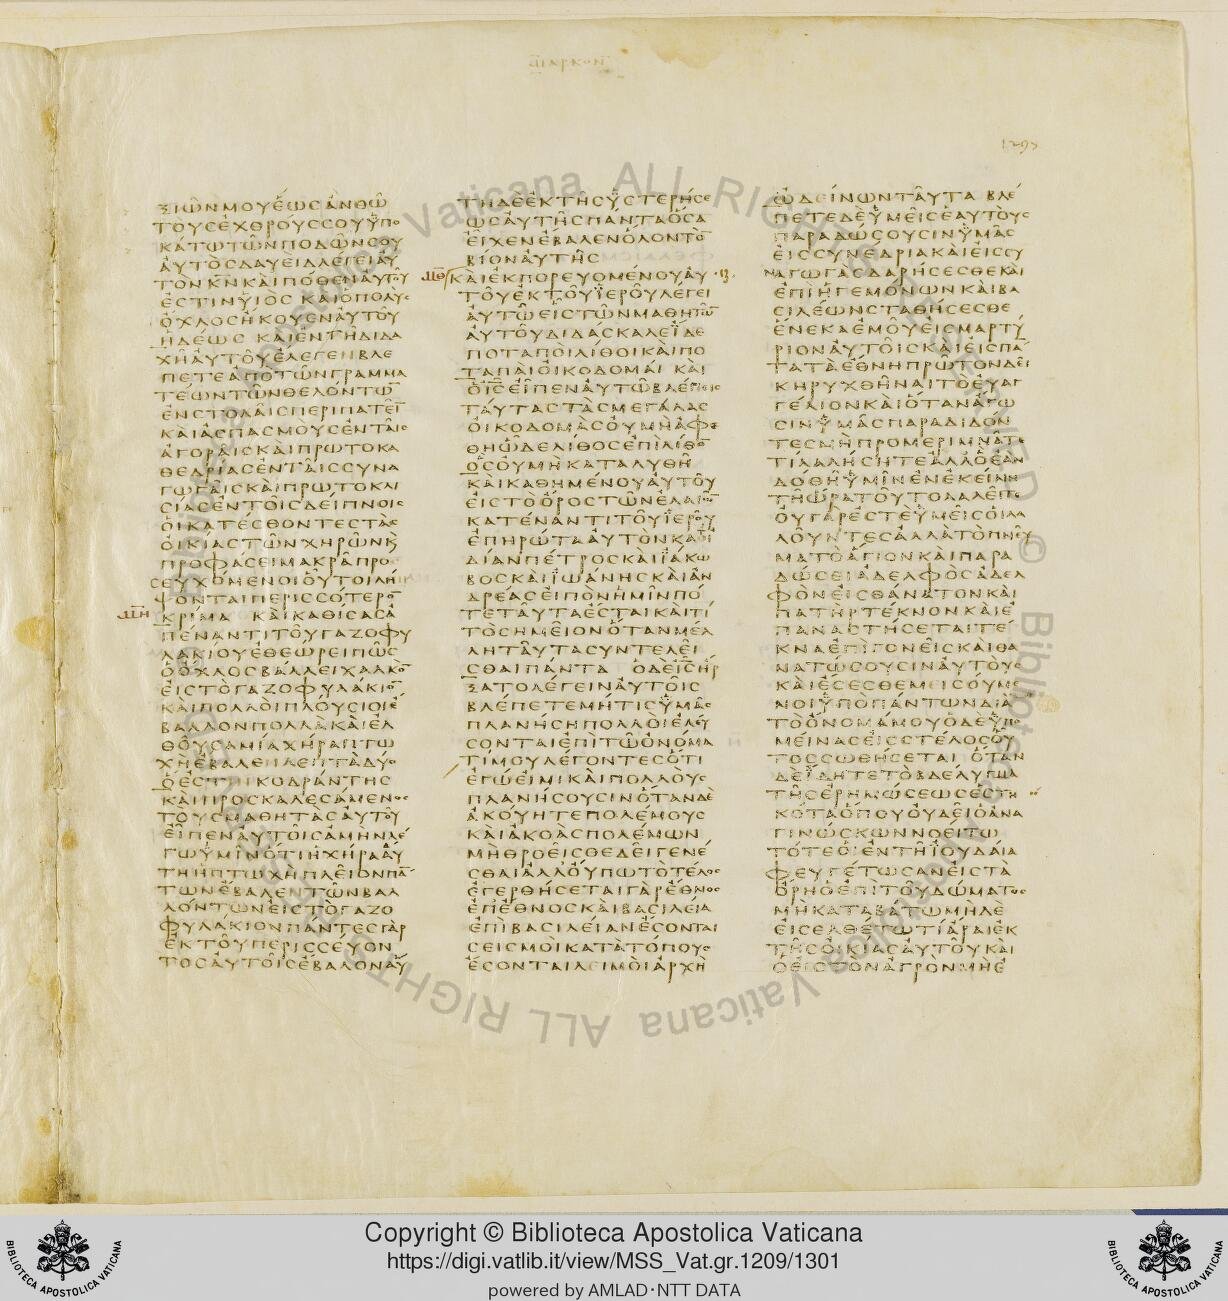 ΜΑΡΚΟΝ
1298
ΞΙΩΝΜΟΥΕΩϹΑΝΘΩ
ΤΟΥϹΕΧΘΡΟΥϹϹΟΥΥΠΟ
ΚΑΤΩΤΩΝΠΟΔΩΝϹΟΥ
ΑΥΤΟϹΔΑΥΕΙΔΛΕΓΕΙΑΥ
ΤΟΝΚΝΚΑΙΠΟΘΕΝΑΥΤΟΥ
ΕϹΤΙΝΥΙΟϹ ΚΑΙΟΠΟΛΥϹ
ΟΧΛΟϹΗΚΟΥΕΝΑΥΤΟΥ
ΗΔΕΩϹ ΚΑΙΕΝΤΗΔΙΔΑ
ΧΗΑΥΤΟΥΕΛΕΓΕΝΒΛΕ
ΠΕΤΕΑΠΟΤΩΝΓΡΑΜΜΑ
ΤΕΩΝΤΩΝΘΕΛΟΝΤΩ
ΕΝϹΤΟΛΑΙϹΠΕΡΙΠΑΤΕΙ
ΚΑΙΑϹΠΑϹΜΟΥϹΕΝΤΑΙϹ
ΑΓΟΡΑΙϹΚΑΙΠΡΩΤΟΚΑ
ΘΕΔΡΙΑϹΕΝΤΑΙϹϹΥΝΑ
ΓΩΓΑΙϹΚΑΙΠΡΩΤΟΚΛΙ
ϹΙΑϹΕΝΤΟΙϹΔΕΙΠΝΟΙϹ
ΟΙΚΑΤΕϹΘΟΝΤΕϹΤΑϹ
ΟΙΚΙΑϹΤΩΝΧΗΡΩΝΚ
ΠΡΟΦΑϹΕΙΜΑΚΡΑΠΡΟ
ϹΕΥΧΟΜΕΝΟΙΟΥΤΟΙΛΗ
ΨΟΝΤΑΙΠΕΡΙϹϹΟΤΕΡΟ
ΜΗ ΚΡΙΜΑ ΚΑΙΚΑΘΙϹΑϹΑ
ΠΕΝΑΝΤΙΤΟΥΓΑΖΟΦΥ
ΛΑΚΙΟΥΕΘΕΩΡΕΙΠΩϹ
ΟΟΧΛΟϹΒΑΛΛΕΙΧΑΛΚΟ
ΕΙϹΤΟΓΑΖΟΦΥΛΑΚΙΟ
ΚΑΙΠΟΛΛΟΙΠΛΟΥϹΙΟΙΕ
ΒΑΛΛΟΝΠΟΛΛΑΚΑΙΕΛ
ΘΟΥϹΑΜΙΑΧΗΡΑΠΤΩ
ΧΗΕΒΑΛΕΝΛΕΠΤΑΔΥΟ
ΟΕϹΤΙΝΚΟΔΡΑΝΤΗϹ
ΚΑΙΠΡΟϹΚΑΛΕϹΑΜΕΝΟϹ
ΤΟΥϹΜΑΘΗΤΑϹΑΥΤΟΥ
ΕΙΠΕΝΑΥΤΟΙϹΑΜΗΝΛΕ
ΓΩΥΜΙΝΟΤΙΗΧΗΡΑΑΥ
ΤΗΗΠΤΩΧΗΠΛΕΙΟΝΠΑ
ΤΩΝΕΒΑΛΕΝΤΩΝΒΑΛ
ΛΟΝΤΩΝΕΙϹΤΟΓΑΖΟ
ΦΥΛΑΚΙΟΝΠΑΝΤΕϹΓΑΡ
ΕΚΤΟΥΠΕΡΙϹϹΕΥΟΝ
ΤΟϹΑΥΤΟΙϹΕΒΑΛΟΝΑΥ
ΤΗΔΕΕΚΤΗϹΥϹΤΕΡΗϹΕ
ΩϹΑΥΤΗϹΠΑΝΤΑΟϹΑ
ΕΙΧΕΝΕΒΑΛΕΝΟΛΟΝΤΟ
ΒΙΟΝΑΥΤΗϹ
ΜΘ ΚΑΙΕΚΠΟΡΕΥΟΜΕΝΟΥΑΥ
ΤΟΥΕΚΤΟΥΙΕΡΟΥΛΕΓΕΙ
ΑΥΤΩΕΙϹΤΩΝΜΑΘΗΤΩ
ΑΥΤΟΥΔΙΔΑϹΚΑΛΕΙΔΕ
ΠΟΤΑΠΟΙΛΙΘΟΙΚΑΙΠΟ
ΤΑΠΑΙΟΙΚΟΔΟΜΑΙ ΚΑΙ
ΟΙϹΕΙΠΕΝΑΥΤΩΒΛΕΠΕΙϹ
ΤΑΥΤΑϹΤΑϹΜΕΓΑΛΑϹ
ΟΙΚΟΔΟΜΑϹΟΥΜΗΑΦΕ
ΘΗΩΔΕΛΙΘΟϹΕΠΙΛΙΘΟ
ΟϹΟΥΜΗΚΑΤΑΛΥΘΗ
ΚΑΙΚΑΘΗΜΕΝΟΥΑΥΤΟΥ
ΕΙϹΤΟΟΡΟϹΤΩΝΕΛΑΙΩ
ΚΑΤΕΝΑΝΤΙΤΟΥΙΕΡΟΥ
ΕΠΗΡΩΤΑΑΥΤΟΝΚΑΤΙ
ΔΙΑΝΠΕΤΡΟϹΚΑΙΙΑΚΩ
ΒΟϹΚΑΙΙΩΑΝΗϹΚΑΙΑΝ
ΔΡΕΑϹΕΙΠΟΝΗΜΙΝΠΟ
ΤΕΤΑΥΤΑΕϹΤΑΙΚΑΙΤΙ
ΤΟϹΗΜΕΙΟΝΟΤΑΝΜΕΛ
ΛΗΤΑΥΤΑϹΥΝΤΕΛΕΙ
ϹΘΑΙΠΑΝΤΑ ΟΔΕΙϹΗΡ
ΞΑΤΟΛΕΓΕΙΝΑΥΤΟΙϹ
ΒΛΕΠΕΤΕΜΗΤΙϹΥΜΑϹ
ΠΛΑΝΗϹΗΠΟΛΛΟΙΕΛΕΥ
ϹΟΝΤΑΙΕΠΙΤΩΟΝΟΜΑ
ΤΙΜΟΥΛΕΓΟΝΤΕϹΟΤΙ
ΕΓΩΕΙΜΙΚΑΙΠΟΛΛΟΥϹ
ΠΛΑΝΗϹΟΥϹΙΝΟΤΑΝΔΕ
ΑΚΟΥΗΤΕΠΟΛΕΜΟΥϹ
ΚΑΙΑΚΟΑϹΠΟΛΕΜΩΝ
ΜΗΘΡΟΕΙϹΘΕΔΕΙΓΕΝΕ
ϹΘΑΙΑΛΛΟΥΠΩΤΟΤΕΛΟϹ
ΕΓΕΡΘΗϹΕΤΑΙΓΑΡΕΘΝΟϹ
ΕΠΕΘΝΟϹΚΑΙΒΑϹΙΛΕΙΑ
ΕΠΙΒΑϹΙΛΕΙΑΝΕϹΟΝΤΑΙ
ϹΕΙϹΜΟΙΚΑΤΑΤΟΠΟΥϹ
ΕϹΟΝΤΑΙΛΕΙΜΟΙΑΡΧΗ
ΩΔΕΙΝΩΝΤΑΥΤΑ ΒΛΕ
ΠΕΤΕΔΕΥΜΕΙϹΕΑΥΤΟΥϹ
ΠΑΡΑΔΩϹΟΥϹΙΝΥΜΑϹ
ΕΙϹϹΥΝΕΔΡΙΑΚΑΙΕΙϹϹΥ
ΝΑΓΩΓΑϹΔΑΡΗϹΕϹΘΕΚΑΙ
ΕΠΙΗΓΕΜΟΝΩΝΚΑΙΒΑ
ϹΙΛΕΩΝϹΤΑΘΗϹΕϹΘΕ
ΕΝΕΚΑΕΜΟΥΕΙϹΜΑΡΤΥ
ΡΙΟΝΑΥΤΟΙϹΚΑΙΕΙϹΠΑ
ΤΑΤΑΕΘΝΗΠΡΩΤΟΝΔΕΙ
ΚΗΡΥΧΘΗΝΑΙΤΟΕΥΑΓ
ΓΕΛΙΟΝΚΑΙΟΤΑΝΑΓΩ
ϹΙΝΥΜΑϹΠΑΡΑΔΙΔΟΝ
ΤΕϹΜΗΠΡΟΜΕΡΙΜΝΑΤΕ
ΤΙΛΑΛΗϹΗΤΕΑΛΛΟΕΑΝ
ΔΟΘΗΥΜΙΝΕΝΕΚΕΙΝΗ
ΤΗΩΡΑΤΟΥΤΟΛΑΛΕΙΤΕ
ΟΥΓΑΡΕϹΤΕΥΜΕΙϹΟΙΛΑ
ΛΟΥΝΤΕϹΑΛΛΑΤΟΠΝΕΥ
ΜΑΤΟΑΓΙΟΝΚΑΙΠΑΡΑ
ΔΩϹΕΙΑΔΕΛΦΟϹΑΔΕΛ
ΦΟΝΕΙϹΘΑΝΑΤΟΝΚΑΙ
ΠΑΤΗΡΤΕΚΝΟΝΚΑΙΕ
ΠΑΝΑϹΤΗϹΕΤΑΙΤΕ
ΚΝΑΕΠΙΓΟΝΕΙϹΚΑΙΘΑ
ΝΑΤΩϹΟΥϹΙΝΑΥΤΟΥϹ
ΚΑΙΕϹΕϹΘΕΜΕΙϹΟΥΜΕ
ΝΟΙΥΠΟΠΑΝΤΩΝΔΙΑ
ΤΟΟΝΟΜΑΜΟΥΟΔΕΥΠΟ
ΜΕΙΝΑϹΕΙϹϹΤΕΛΟϹΟΥ
ΤΟϹϹΩΘΗϹΕΤΑΙ ΟΤΑΝ
ΔΕΙΔΗΤΕΤΟΒΔΕΛΥΓΜΑ
ΤΗϹΕΡΗΜΩϹΕΩϹΕϹΤΗ
ΚΟΤΑΟΠΟΥΟΥΔΕΙΟΑΝΑ
ΓΙΝΩϹΚΩΝΝΟΕΙΤΩ
ΤΟΤΕΟΙΕΝΤΗΙΟΥΔΑΙΑ
ΦΕΥΓΕΤΩϹΑΝΕΙϹΤΑ
ΟΡΗΟΕΠΙΤΟΥΔΩΜΑΤΟϹ
ΜΗΚΑΤΑΒΑΤΩΜΗΔΕ
ΕΙϹΕΛΘΕΤΩΤΙΑΡΑΙΕΚ
ΤΗϹΟΙΚΙΑϹΑΥΤΟΥΚΑΙ
ΟΕΙϹΤΟΝΑΓΡΟΝΜΗΕ
Biblioteca Apostolica Vaticana ALL RIGHTS RESERVED ©
Copyright © Biblioteca Apostolica Vaticana
https://digi.vatlib.it/view/MSS_Vat.gr.1209/1301
powered by AMLAD·NTT DATA
BIBLIOTECA APOSTOLICA VATICANA
BIBLIOTECA APOSTOLICA VATICANA